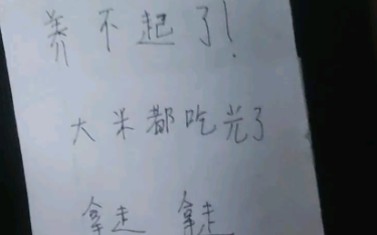 养不起了!
大米都吃光了
拿走 拿走